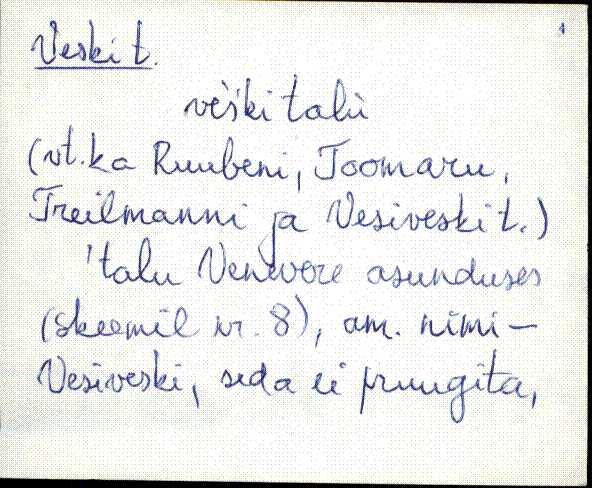 1
Veski t.
veski talu
(vt. ka Ruubeni, Toomaru,
Treilmanni ja Vesiveski t.)
'talu Venevere asunduses
(skeemil nr. 8), am. nimi -
Vesiveski, seda ei pruugita,